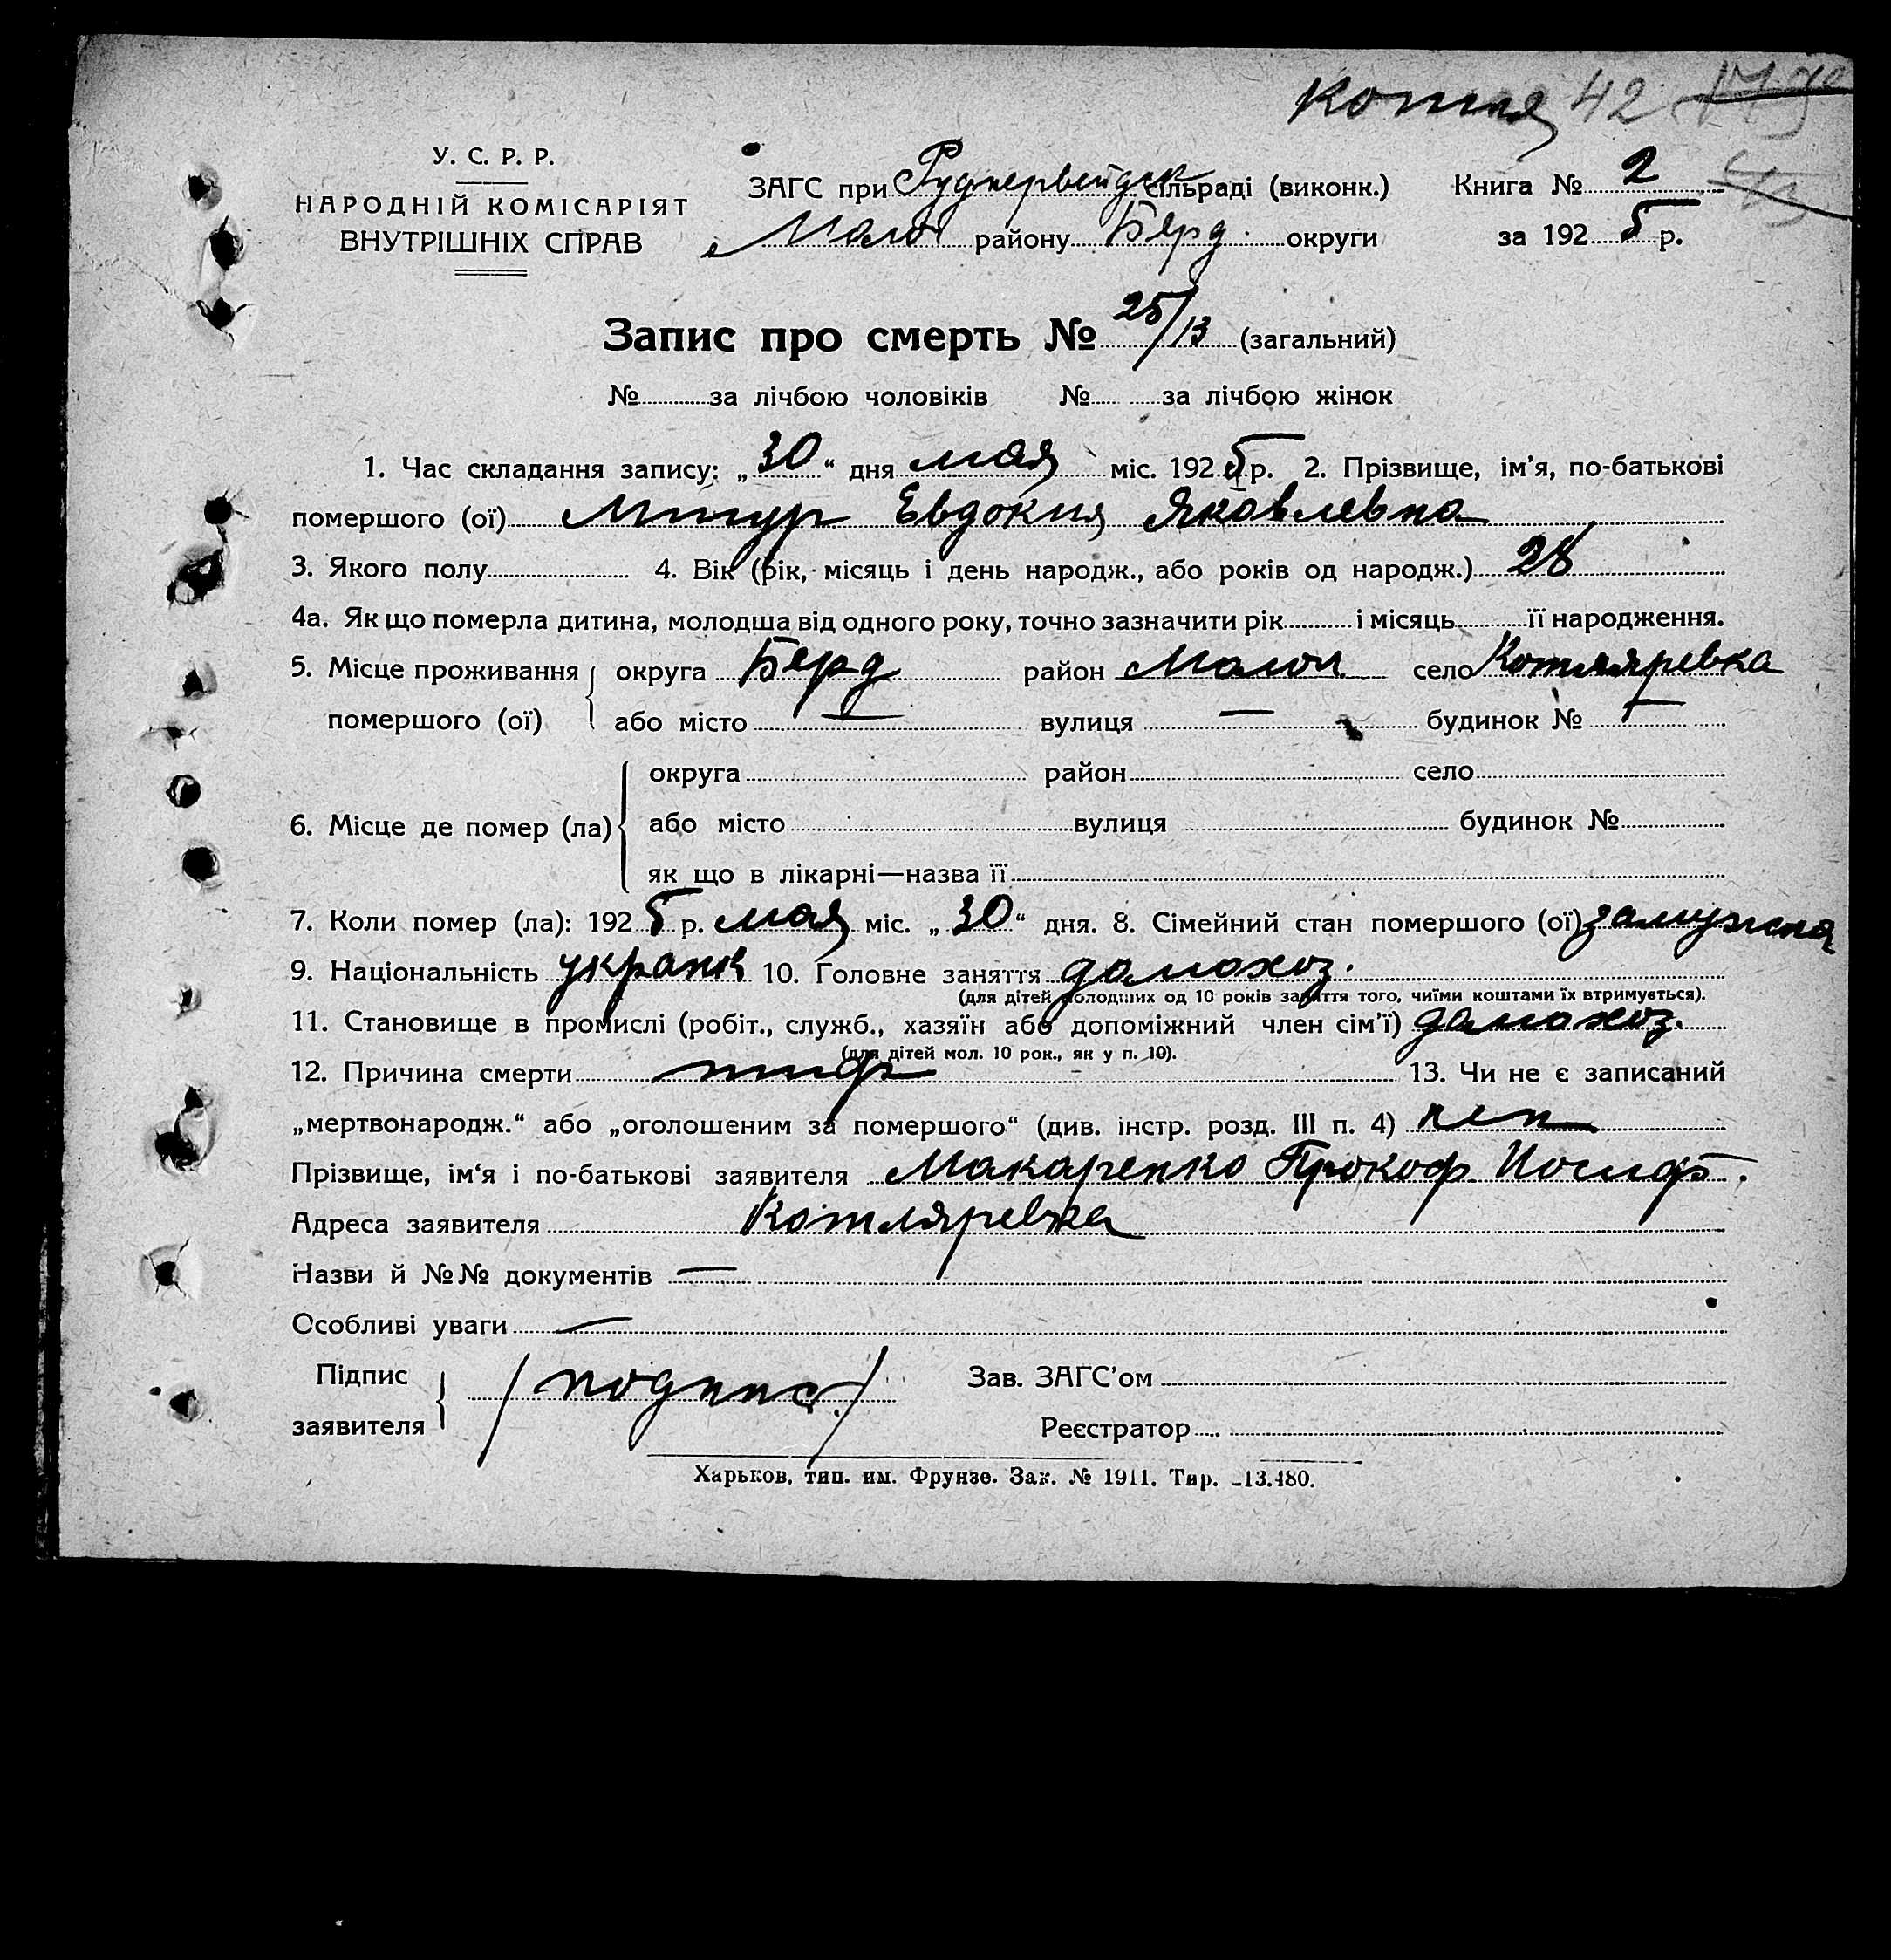 Котля 42
У. С. Р. Р.
НАРОДНІЙ КОМІСАРІЯТ
ВНУТРІШНІХ СПРАВ
ЗАГС при сільраді (виконк.) Книга № 2
Молоч району Берд. округи за 1925 р.
Запис про смерть № 25/13 (загальний)
№ за лічбою чоловіків № за лічбою жінок
1. Час складання запису: „30“ дня мая міс. 1925 р. 2. Прізвище, ім’я, по-батькові
помершого (ої) Евдокия Яковлевна
3. Якого полу 4. Вік (рік, місяць і день народж., або років од народж.) 28
4а. Як що померла дитина, молодша від одного року, точно зазначити рік і місяць її народження.
5. Місце проживання округа Берд район Молоч село Котляревка
помершого (ої) або місто — вулиця — будинок № —
округа район село
6. Місце де помер (ла) або місто вулиця будинок №
як що в лікарні—назва її
7. Коли помер (ла): 1925 р. мая міс. „30“ дня. 8. Сімейний стан помершого (ої) замужня
9. Національність 10. Головне заняття домохоз.
(для дітей молодших од 10 років заняття того, чиїми коштами їх втримується).
11. Становище в промислі (робіт., служб., хазяїн або допоміжний член сім’ї) домохоз.
(для дітей мол. 10 рок., як у п. 10).
12. Причина смерти тиф 13. Чи не є записаний
„мертвонародж.“ або „оголошеним за помершого“ (див. інстр. розд. III п. 4) нет
Прізвище, ім‘я і по-батькові заявителя Макаренко Прокоф. Иосиф.
Адреса заявителя Котляревка
Назви й №№ документів —
Особливі уваги —
Підпис
заявителя /подпись/ Зав. ЗАГС’ом
Реєстратор
Харьков, тип. им. Фрунзе. Зак. № 1911. Тир. 13.480.